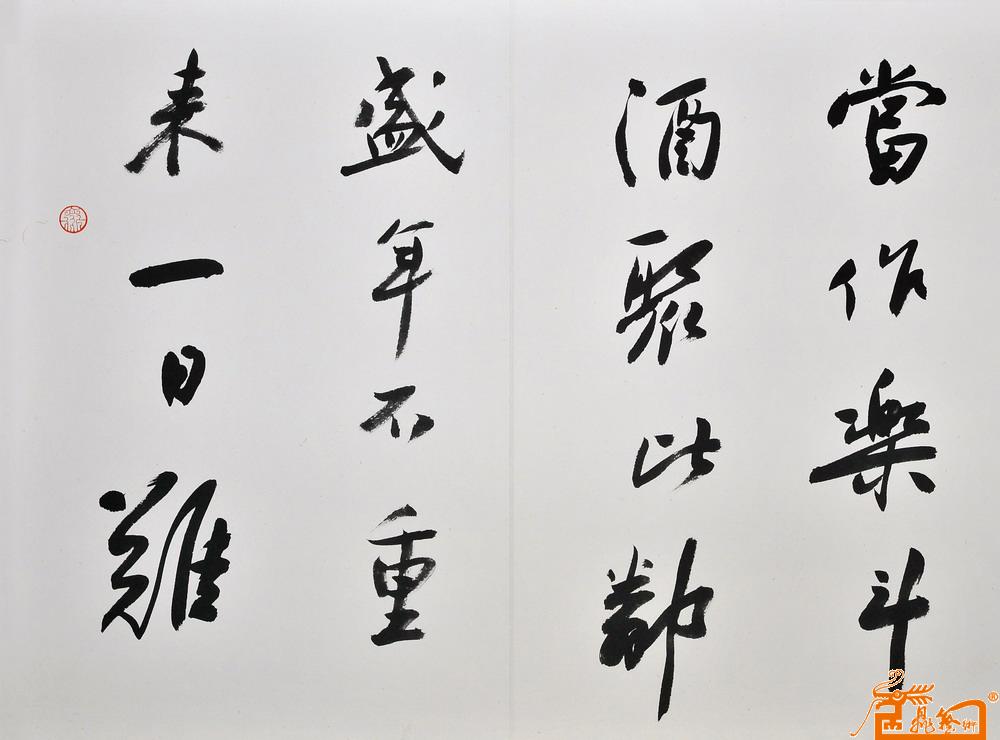 當作樂斗
酒聚比鄰
盛年不重
来一日難